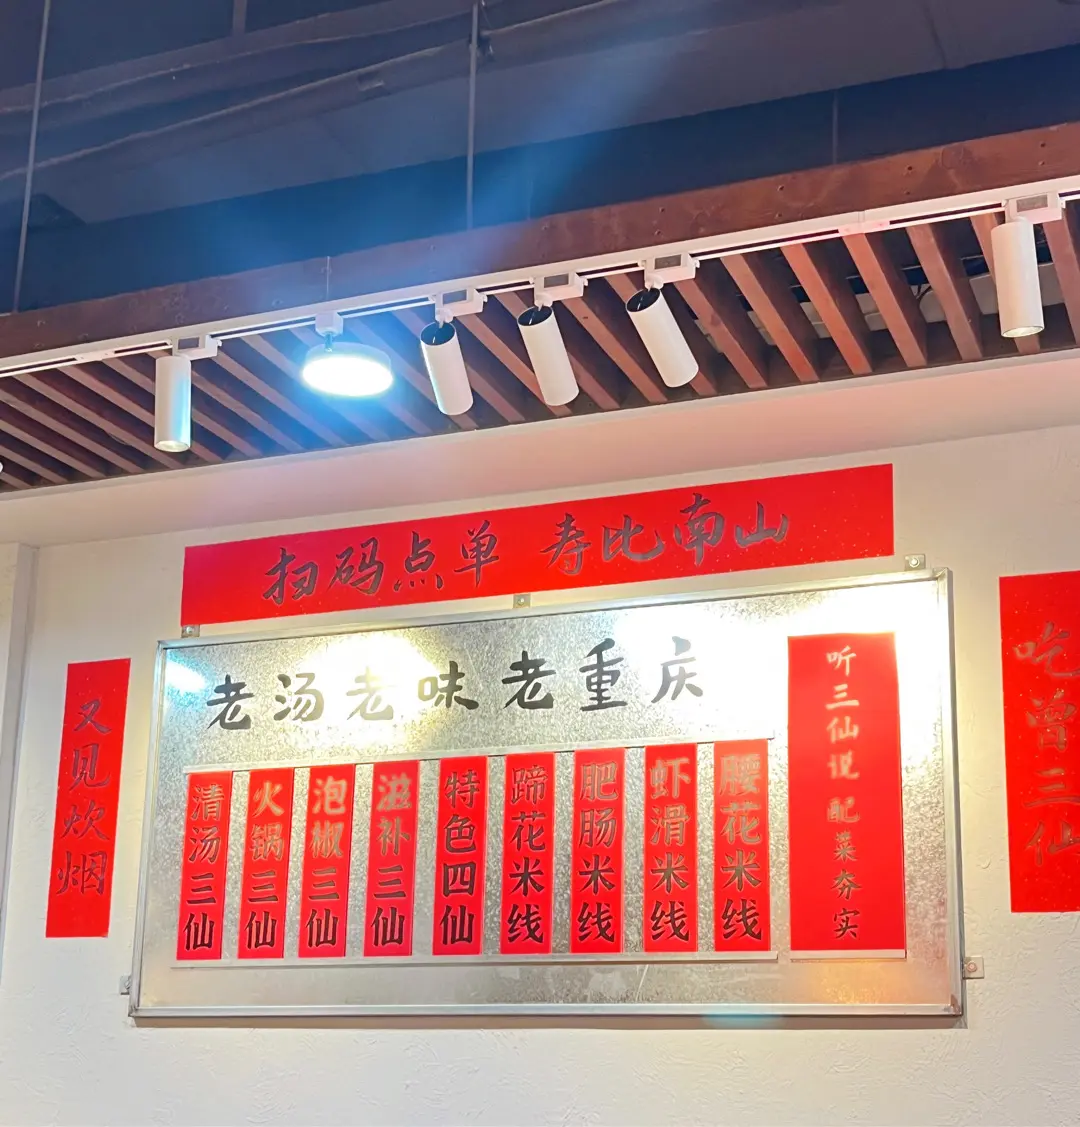 扫码点单 寿比南山
又见炊烟
老汤老味老重庆
清汤三仙
火锅三仙
泡椒三仙
滋补三仙
特色四仙
蹄花米线
肥肠米线
虾滑米线
腰花米线
听三仙说 配菜夯实
吃曾三仙